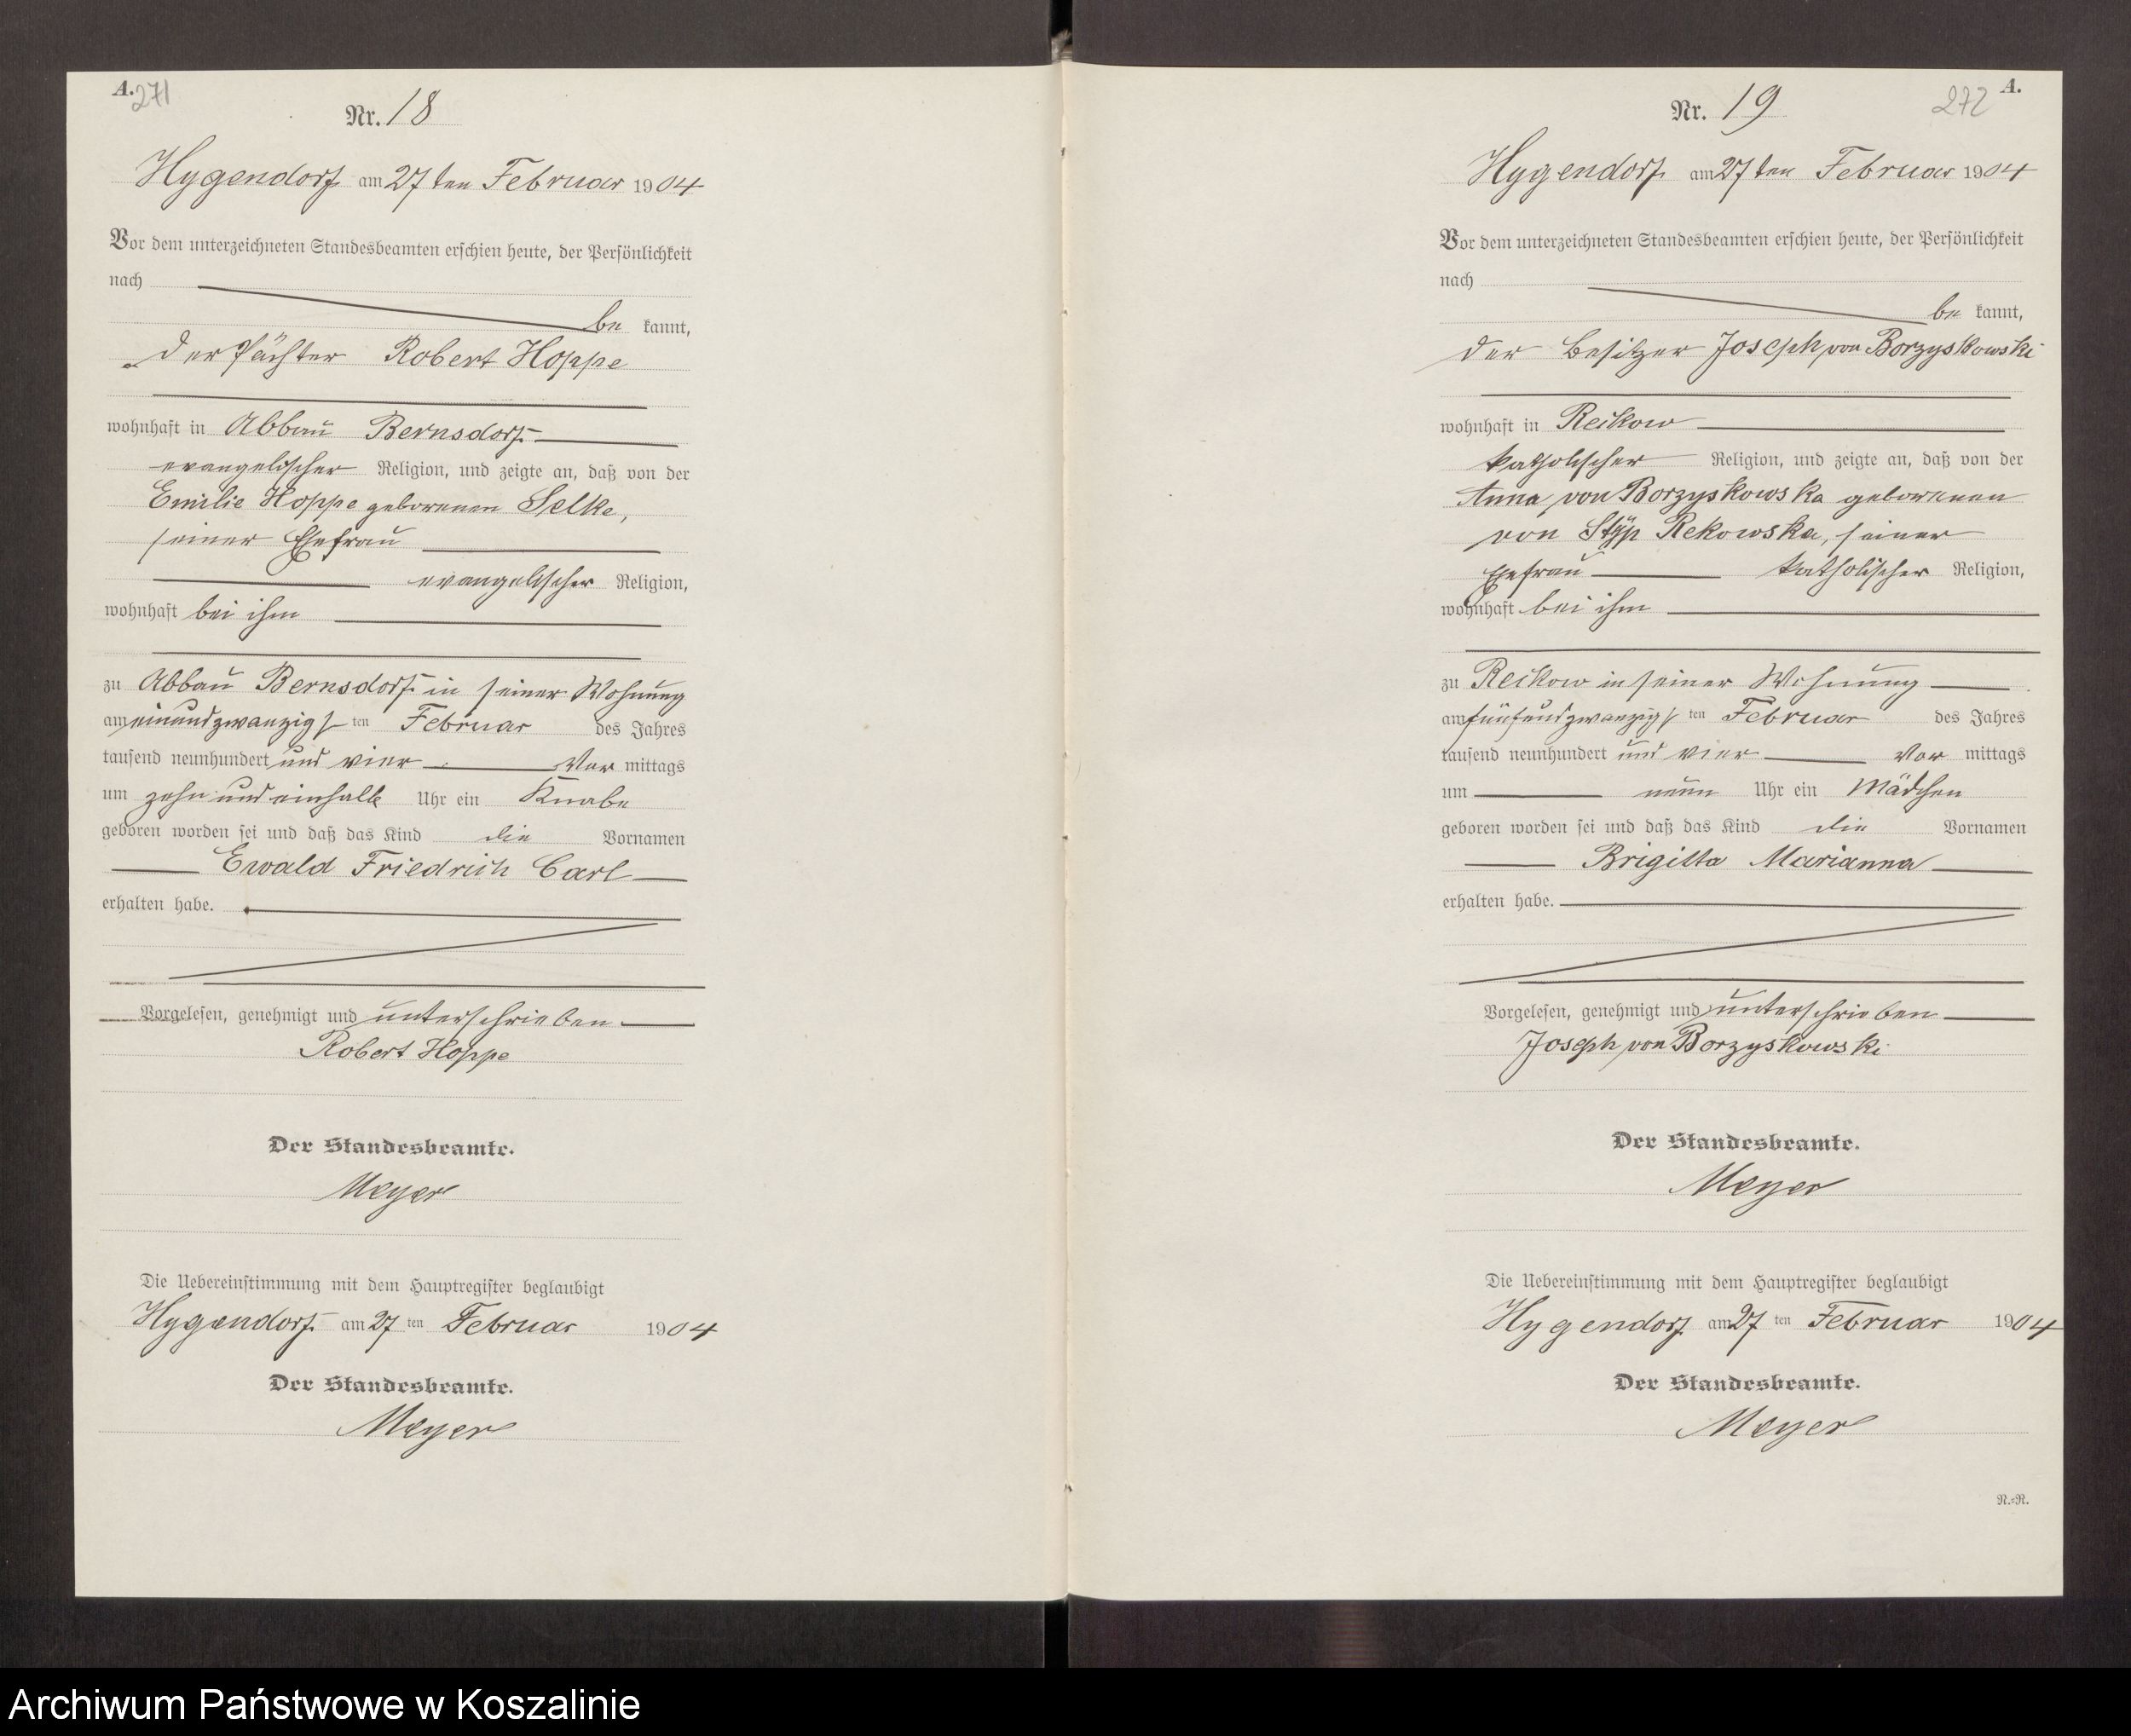 A.
271
Nr. 18
Hygendorf am 27ten Februar 1904
Vor dem unterzeichneten Standesbeamten erschien heute, der Persönlichkeit
nach
be kannt,
der Pächter Robert Hoppe
wohnhaft in Abbau Bernsdorf
evangelischer Religion, und zeigte an, daß von der
Emilie Hoppe geborenen Selke,
seiner Ehefrau
evangelischer Religion,
wohnhaft bei ihm
zu Abbau Bernsdorf in seiner Wohnung
am einundzwanzigsten Februar des Jahres
tausend neunhundert und vier Vor mittags
um zehn und einhalb Uhr ein Knabe
geboren worden sei und daß das Kind die Vornamen
Ewald Friedrich Carl
erhalten habe.
Vorgelesen, genehmigt und unterschrieben
Robert Hoppe
Der Standesbeamte.
Meyer
Die Uebereinstimmung mit dem Hauptregister beglaubigt
Hygendorf am 27 ten Februar 1904
Der Standesbeamte.
Meyer
A.
272
Nr. 19
Hygendorf am 27ten Februar 1904
Vor dem unterzeichneten Standesbeamten erschien heute, der Persönlichkeit
nach
be kannt,
der Besitzer Joseph von Borzyskowski
wohnhaft in Reckow
katholischer Religion, und zeigte an, daß von der
Anna von Borzyskowska geborenen
von Styp Rekowska, seiner
Ehefrau katholischer Religion,
wohnhaft bei ihm
zu Reckow in seiner Wohnung
am fünfundzwanzigsten Februar des Jahres
tausend neunhundert und vier Vor mittags
um neun Uhr ein Mädchen
geboren worden sei und daß das Kind die Vornamen
Brigitta Marianna
erhalten habe.
Vorgelesen, genehmigt und unterschrieben
Joseph von Borzyskowski
Der Standesbeamte.
Meyer
Die Uebereinstimmung mit dem Hauptregister beglaubigt
Hygendorf am 27 ten Februar 1904
Der Standesbeamte.
Meyer
N.=R.
Archiwum Państwowe w Koszalinie